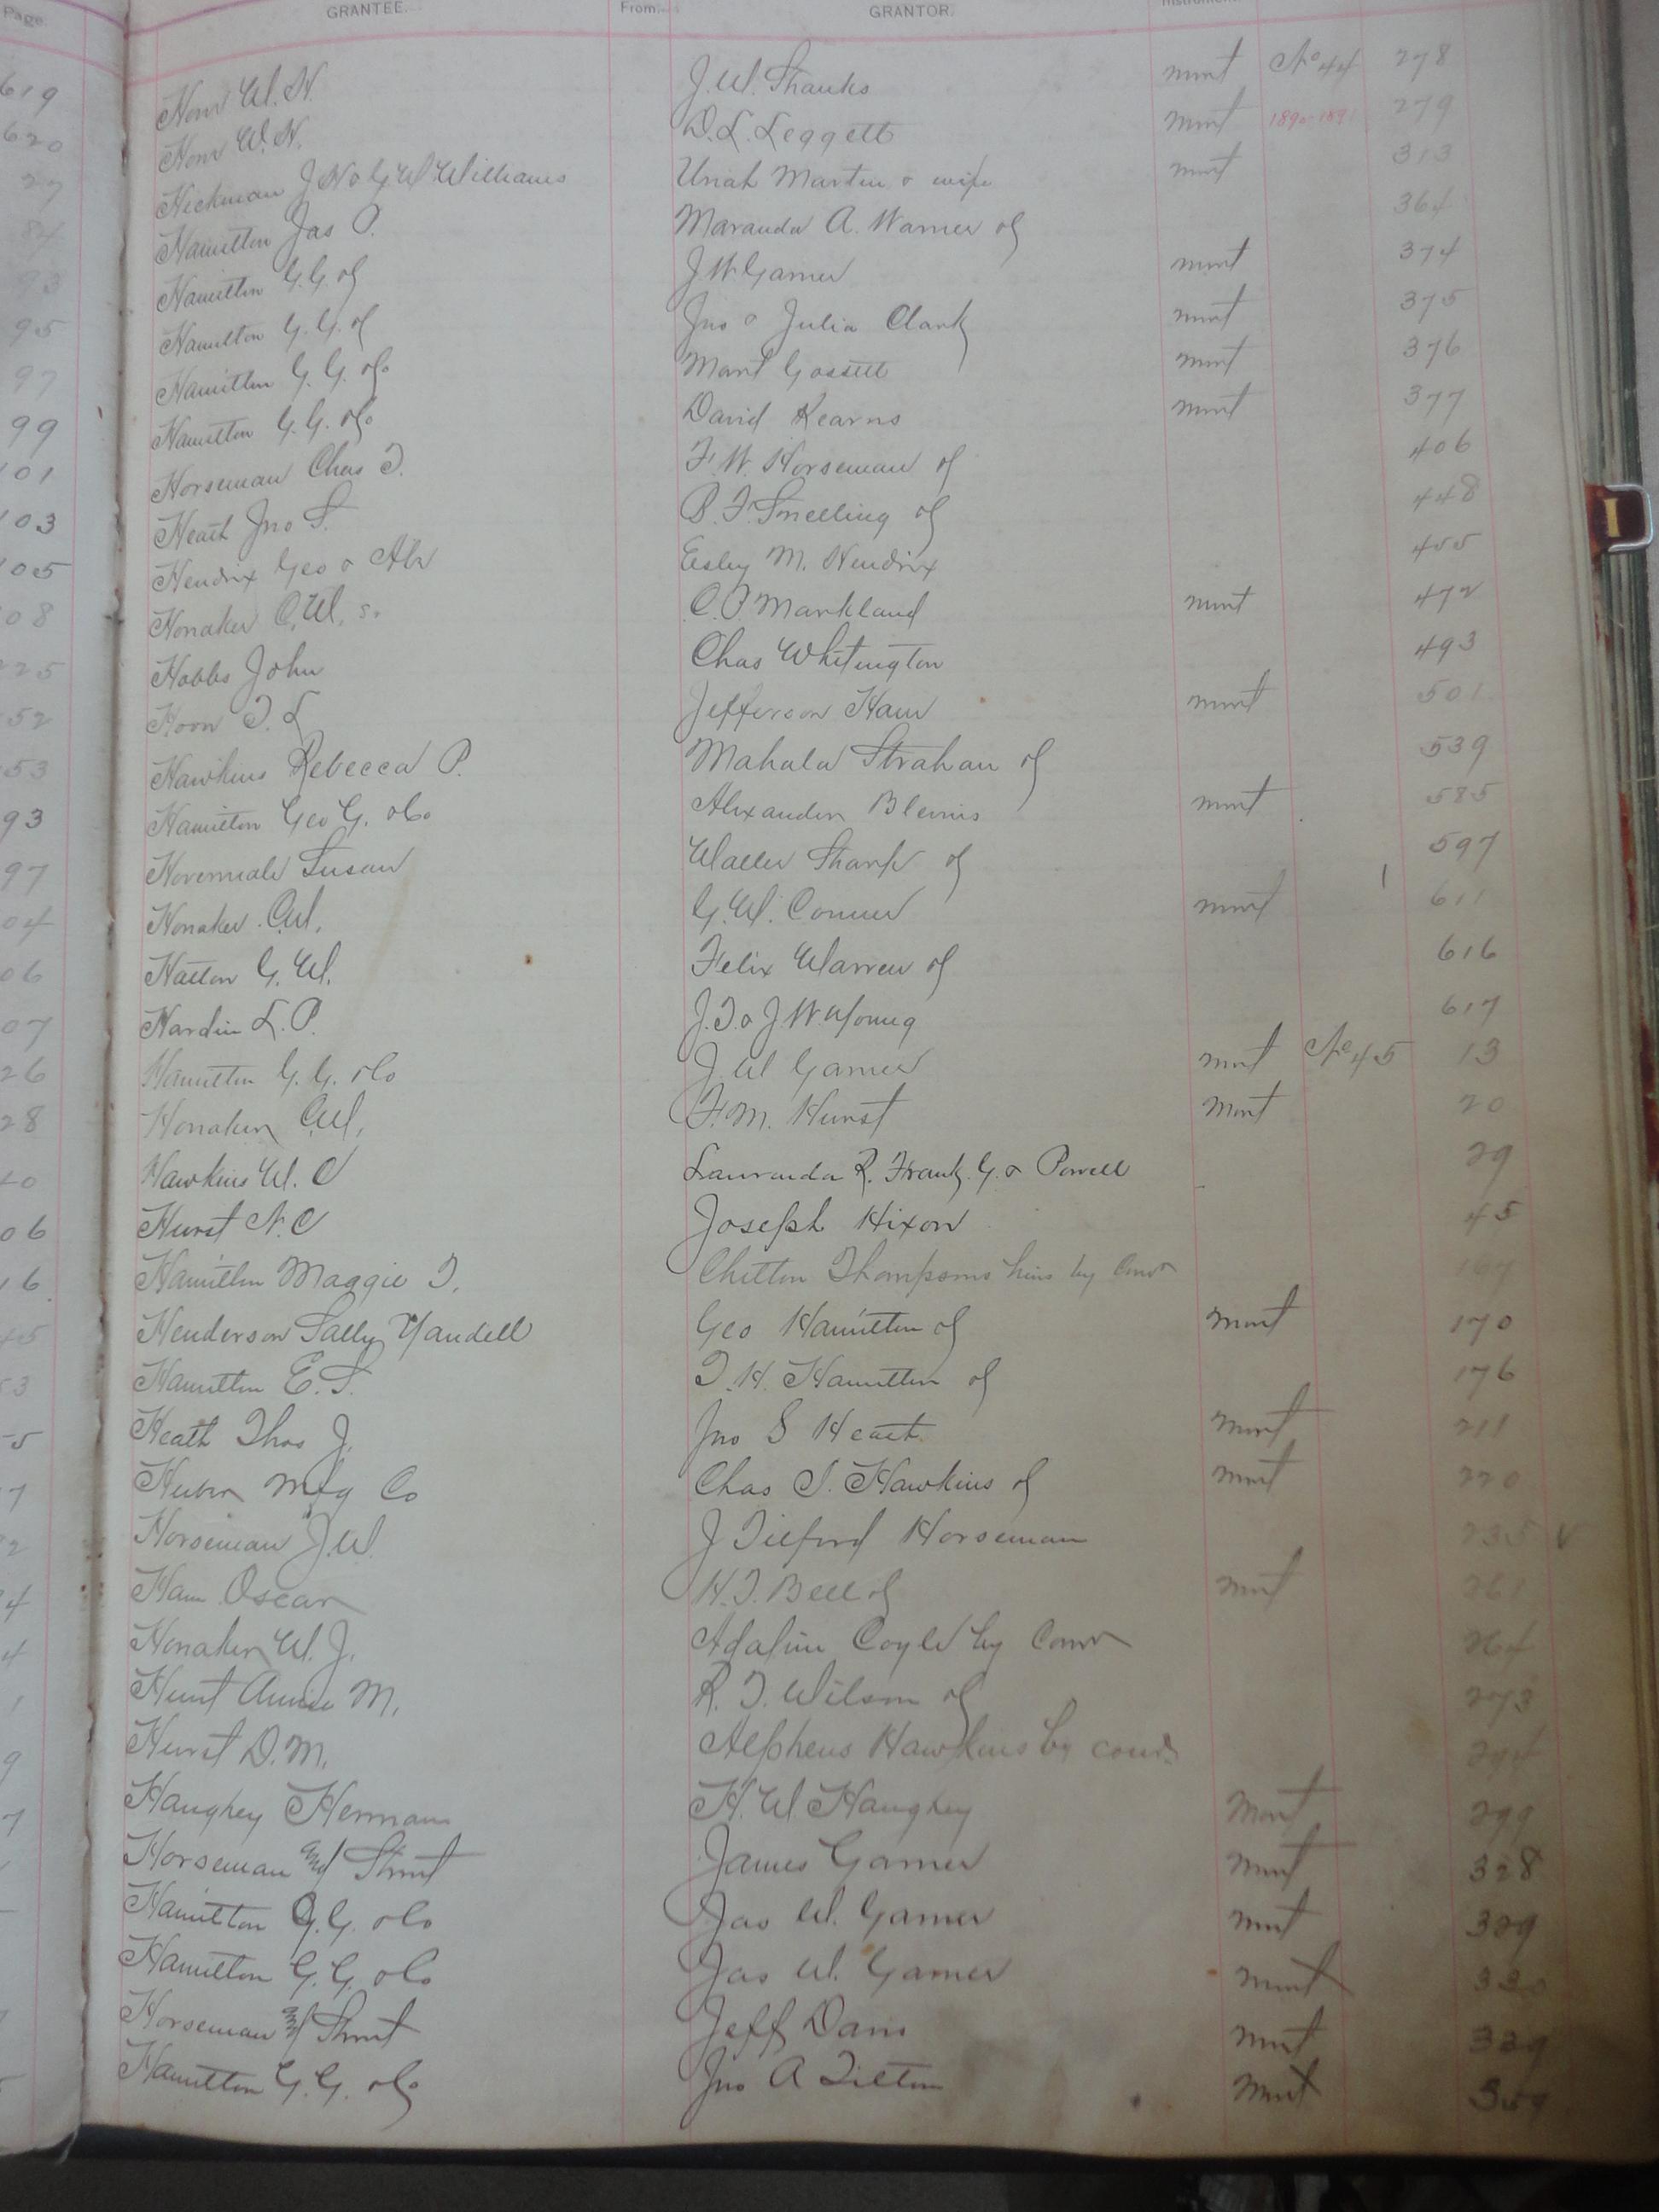 Page. GRANTEE. From GRANTOR. Instrument.
619 Horn W. H. J. W. Shanks mort No 44 278
620 Horn W. H. D. L. Leggett mort 1890-1891 279
27 Hickman J No & G W Williams Uriah Martin & wife mort 313
84 Hamilton Jas P. Maranda A. Warner of 364
93 Hamilton G. G. of J. W. Garner mort 374
95 Hamilton G. G. of Jno & Julia Clark mort 375
97 Hamilton G. G. & Co Mart Gossett mort 376
99 Hamilton G. G. & Co David Kearns mort 377
101 Horseman Chas T. F. W. Horseman of 406
103 Heath Jno S. B. F. Snelling of 448
105 Hendrix Geo & Alx Esley M. Hendrix 455
08 Honaker C. W. Sr. C. P. Markland mort 472
225 Hobbs John Chas Whitington 493
52 Hoon T. L Jefferson Ham mort 501
53 Hawkins Rebecca P. Mahala Strahan of 539
93 Hamilton Geo G. & Co Alexander Blevins mort 585
97 Susan Waller Sharp of 597
04 Honaker C. W. G. W. Conner mort 611
06 Hatton G. W. Felix Warren of 616
07 Hardin L. P. J. T. & J. W. Young 617
26 Hamilton G. G. & Co J. W Garner mort No 45 13
28 Honaker C. W. F. M. Hurst mort 20
40 Hawkins W. C R. Frank G. & Powell 29
06 Hurst N. C Joseph Hixon 45
16 Hamilton Maggie T. Chilton Thompsons heirs by Comr 167
45 Henderson Sally Yandell Geo Hamilton of mort 170
53 Hamilton E. S. T. H. Hamilton of 176
5 Heath Thos J. Jno S Heath mort 211
7 Huber Mfg Co Chas T. Hawkins of mort 220
2 Horseman J. W. J Tilford Horseman 235 v
4 Ham Oscar H. T. Bell of mort 261
4 Honaker W. J. Adaline Coyle by Comr 264
1 Hunt Annie M. R. T. Wilson of 273
9 Hurst D. M. Alpheus Hawkins by comr 294
7 Haughey Herman H. W Haughey mort 299
Horseman and Shout James Garner mort 328
Hamilton G. G. & Co Jas W. Garner mort 329
Hamilton G. G. & Co Jas W. Garner mort 330
Horseman and Shout Jeff Davis mort 339
Hamilton G. G. & Co Jno A Tilton mort
I